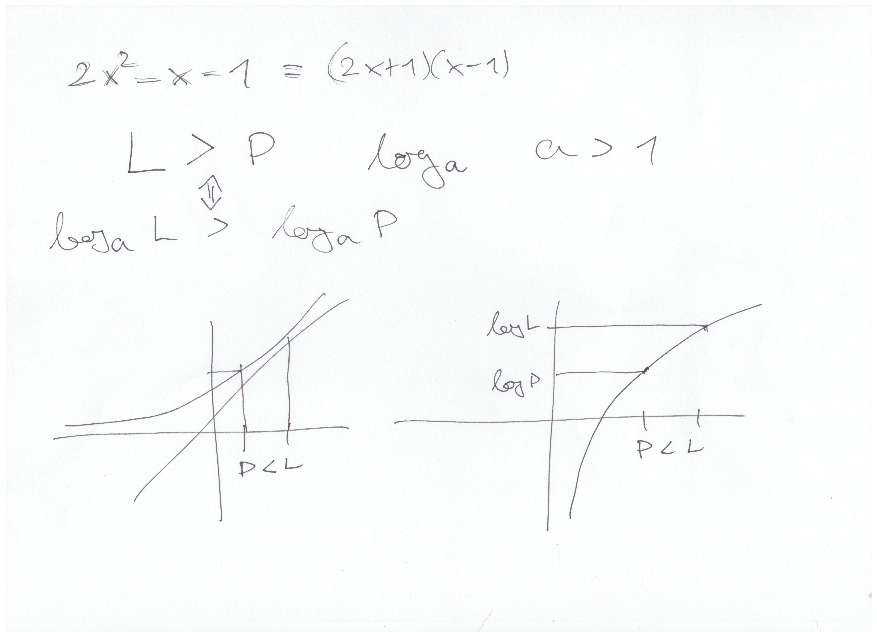 2x² - x - 1 ≡ (2x+1)(x-1)
L > P log a a > 1
⇕
log a L > log a P
log L
log P
P < L
P < L